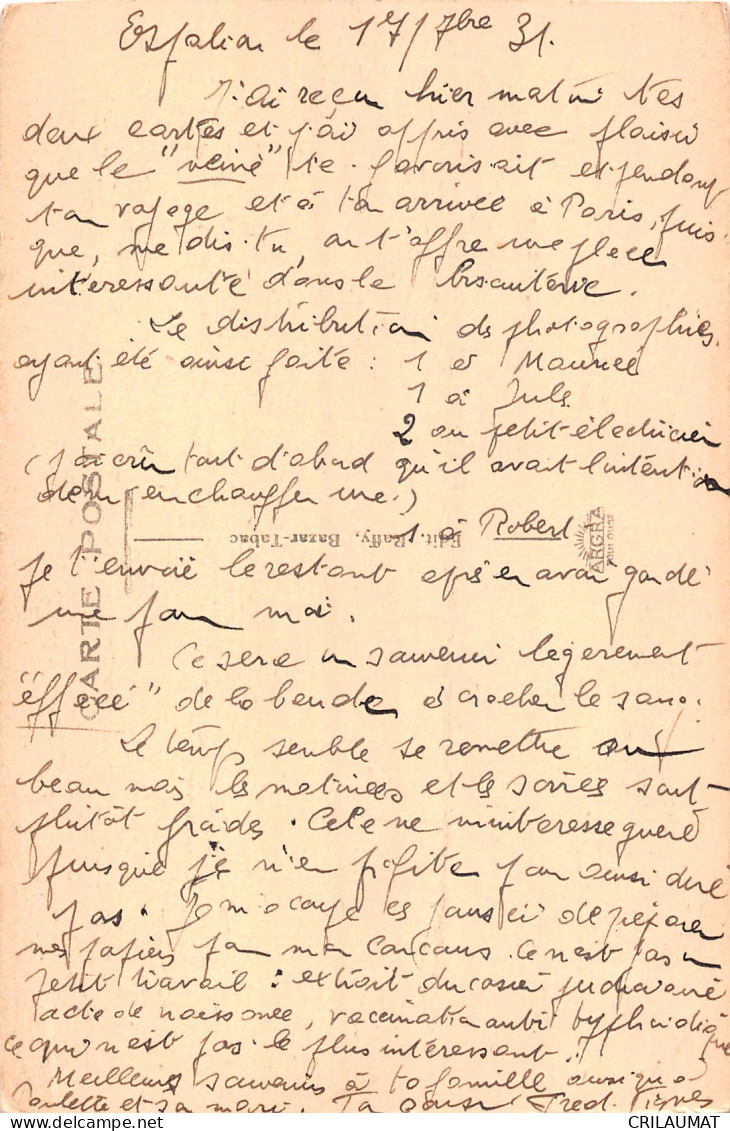 Espalion le 17/7bre 31.
J'ai reçu hier matin tes
deux cartes et j'ai appris avec plaisir
que la "veine" te favorisait et pendant
ton voyage et à ton arrivée à Paris, puis
que, me dis-tu, on t'offre une place
intéressante dans la bijouterie.
La distribution des photographies
ayant été ainsi faite : 1 à Maurice
1 à Jules
2 au petit électricien
(j'ai cru tout d'abord qu'il avait l'intention
de m'en chauffer une.)
1 à Robert
Je t'envoie le restant après en avoir gardé
une pour moi.
Ce sera un souvenir légèrement
"effacé" de la bande à crocher le sang.
Le temps semble se remettre au
beau mais les matinées et les soirées sont
plutôt froides. Cela ne m'intéresse guère
puisque je n'en profite pour ainsi dire
pas. Je m'occupe ces jours ci de préparer
mes papiers pour mon concours. Ce n'est pas un
petit travail : extrait du casier judiciaire
acte de naissance, vaccination anti typhoïdique
ce qui n'est pas le plus intéressant !!
Meilleurs souvenirs à ta famille ainsi qu'à
Paulette et son mari. Ton Fred.
CARTE POSTALE
Edit. Raffy, Bazar-Tabac
ARGRA
CRILAUMAT